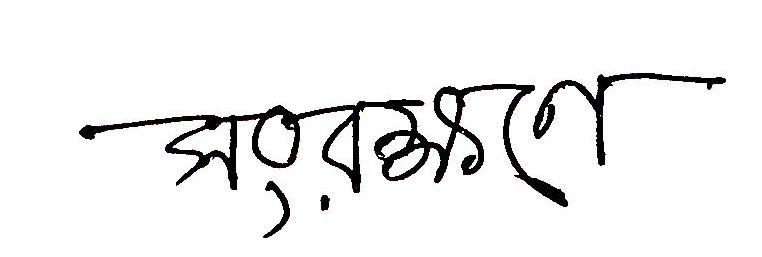 সংরক্ষণে